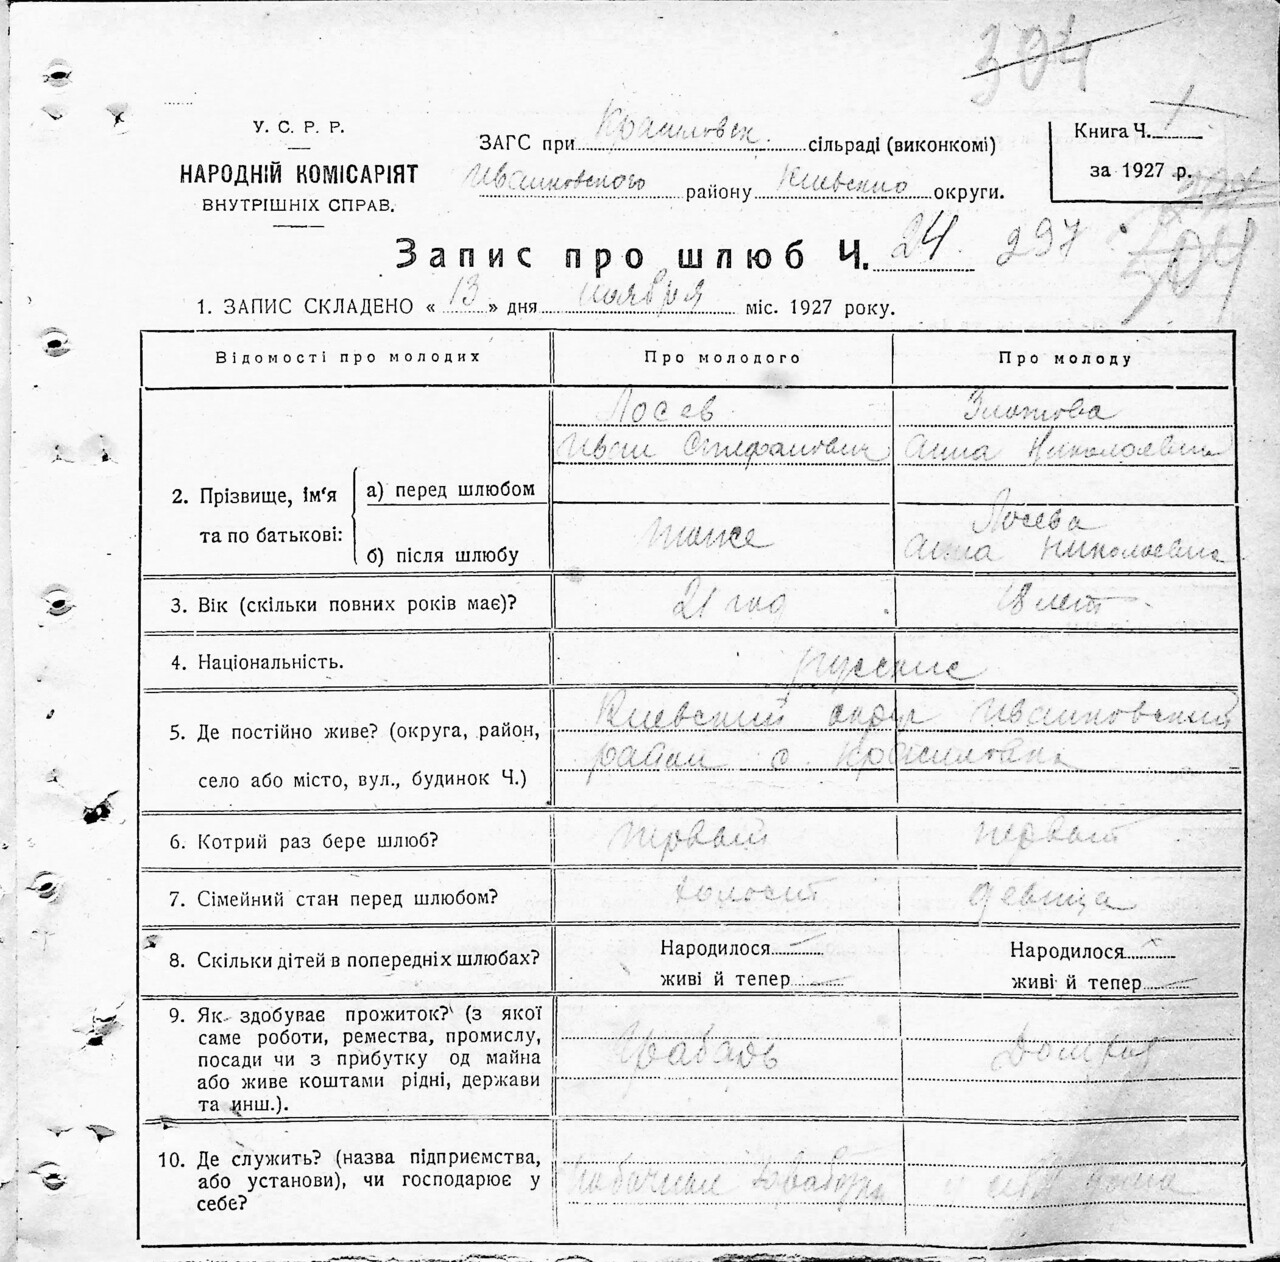 304
У. С. Р. Р.
НАРОДНІЙ КОМІСАРІЯТ
ВНУТРІШНІХ СПРАВ.
ЗАГС при Красиловск. сільраді (виконкомі)
Иванковского району Киевского округи.
Книга Ч.
за 1927 р.
Запис про шлюб Ч. 24. 297
304
1. ЗАПИС СКЛАДЕНО « 13 » дня ноября міс. 1927 року.
Відомості про молодих Про молодого Про молоду
Лосев Златова
Иван Стефанович Анна Николаевна
2. Прізвище, ім'я
та по батькові:
а) перед шлюбом
б) після шлюбу
тоже
Лосева
Анна Николаевна
3. Вік (скільки повних років має)? 21 год 18 лет
4. Національність. русские
5. Де постійно живе? (округа, район,
село або місто, вул., будинок Ч.)
Киевский округ Иванковский
район с. Красиловка
6. Котрий раз бере шлюб? первый первый
7. Сімейний стан перед шлюбом? холост девица
8. Скільки дітей в попередніх шлюбах? Народилося Народилося
живі й тепер живі й тепер
9. Як здобуває прожиток? (з якої
саме роботи, ремества, промислу,
посади чи з прибутку од майна
або живе коштами рідні, держави
та инш.).
Грабарь
10. Де служить? (назва підприємства,
або установи), чи господарює у
себе?